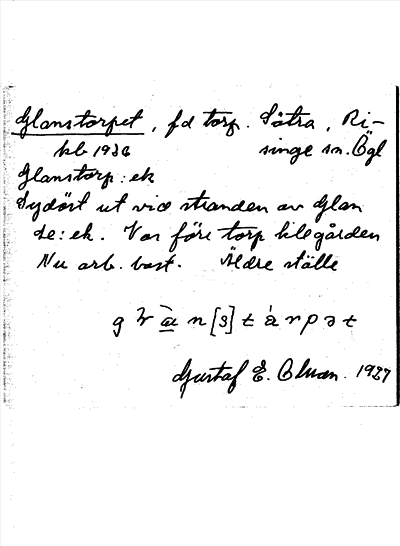 Glanstorpet, fd torp. Sätra, Ri-
kb 1936 singe sn. Ögl
Glanstorp: ek
Sydöst ut vid stranden av Glan
de: ek. Var före torp till gården
Nu arb. bost. Äldre ställe
n[s]tàrpət
Gustaf E. 1937